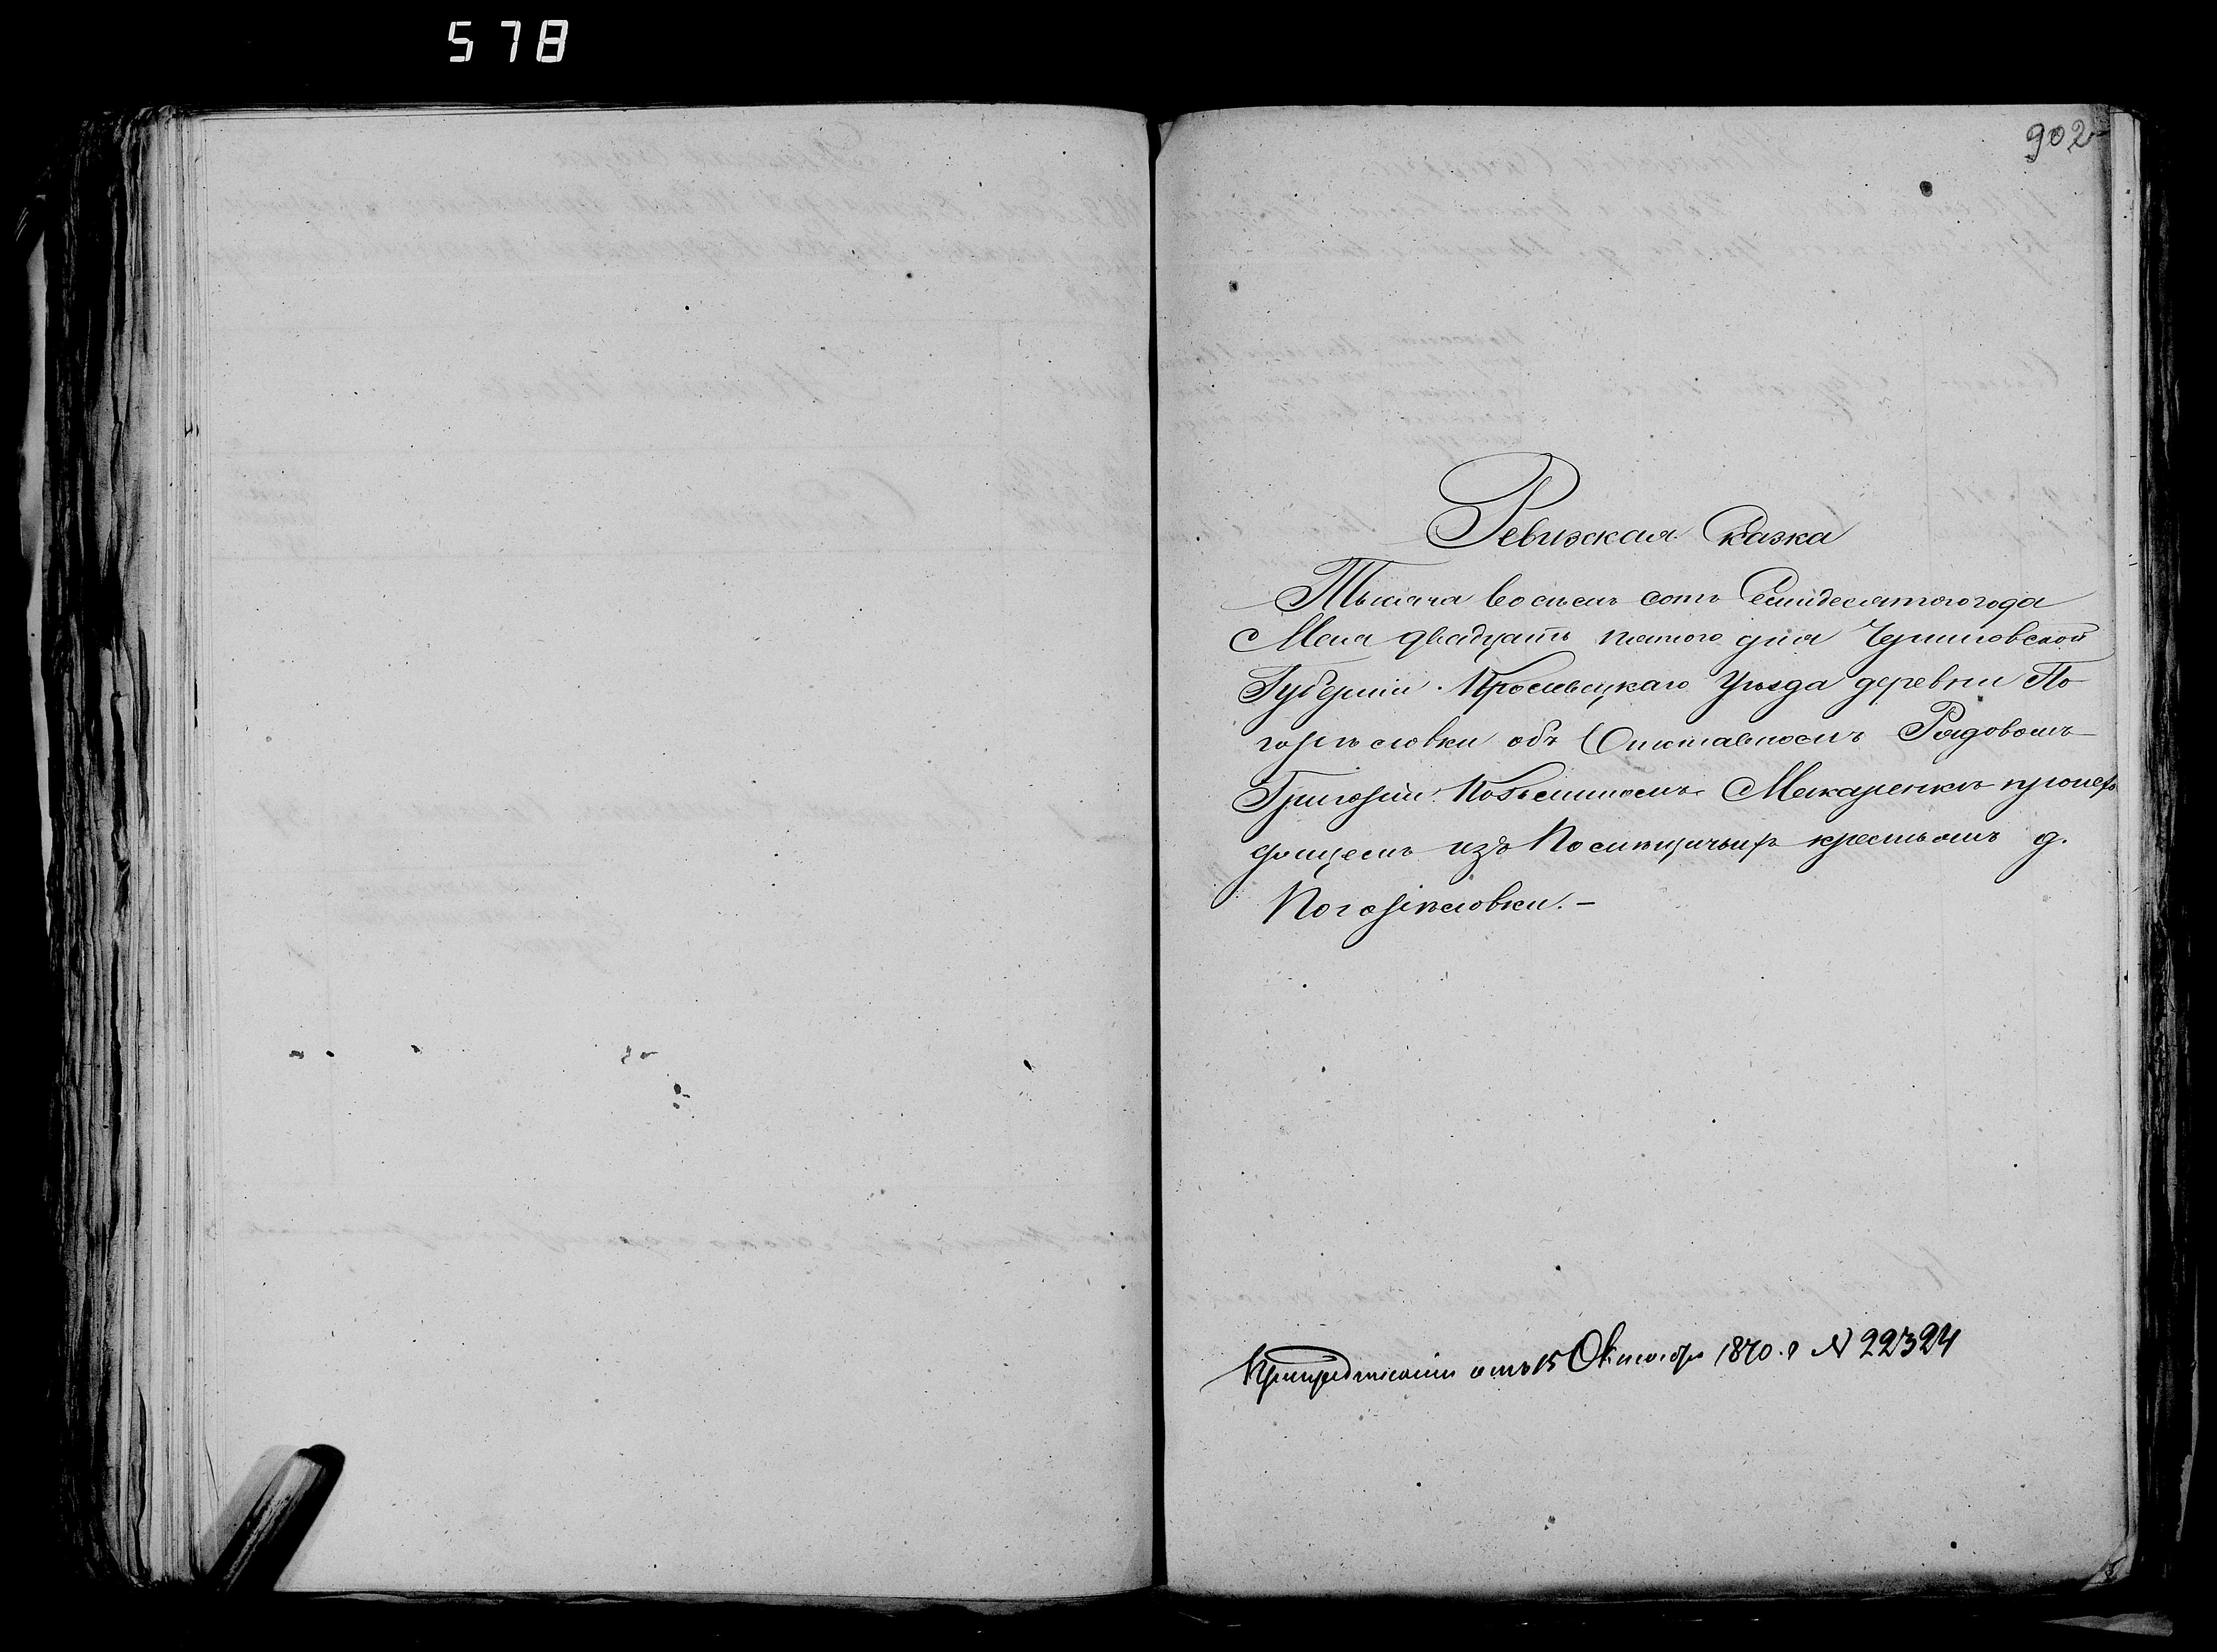 578
902
Ревизская Сказка
Тысяча восемь сотъ Семидесятого года
Мая двадцать пятого дня Черниговской
Губерніи Кролевецкаго Уѣзда деревни По
горѣловки объ Отставномъ Рядовомъ
Григоріи Козьминомъ Макаренкѣ происхо
дящемъ изъ Помѣщичьихъ крестьянъ д.
Погорѣловки. –
При предписаніи отъ 15 Октября 1870. г № 22324